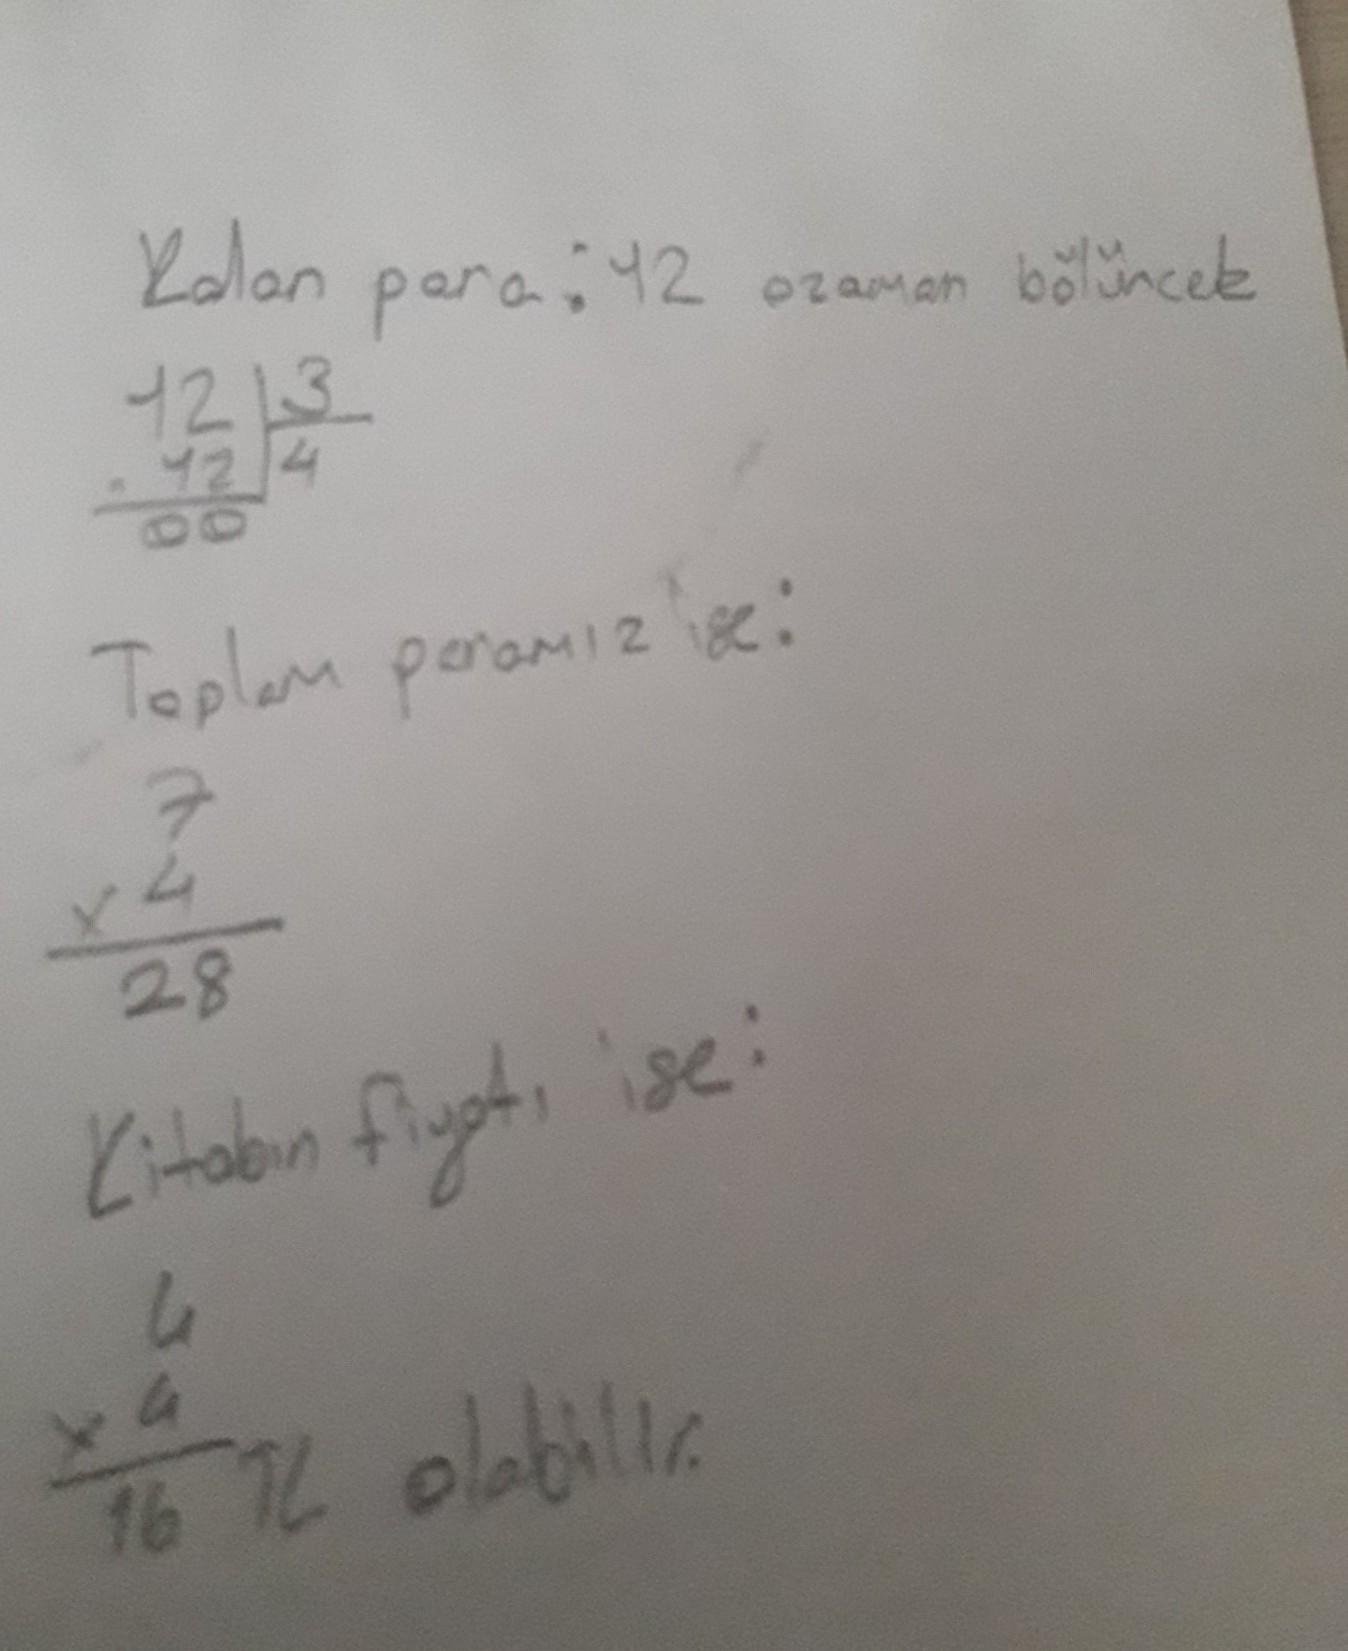 Kalan para: 12 ozaman bölüncek
12 | 3
- 12 | 4
00
Toplam paramız ise:
7
x 4
28
Kitabın fiyatı ise:
4
x 4
16 TL olabilir.